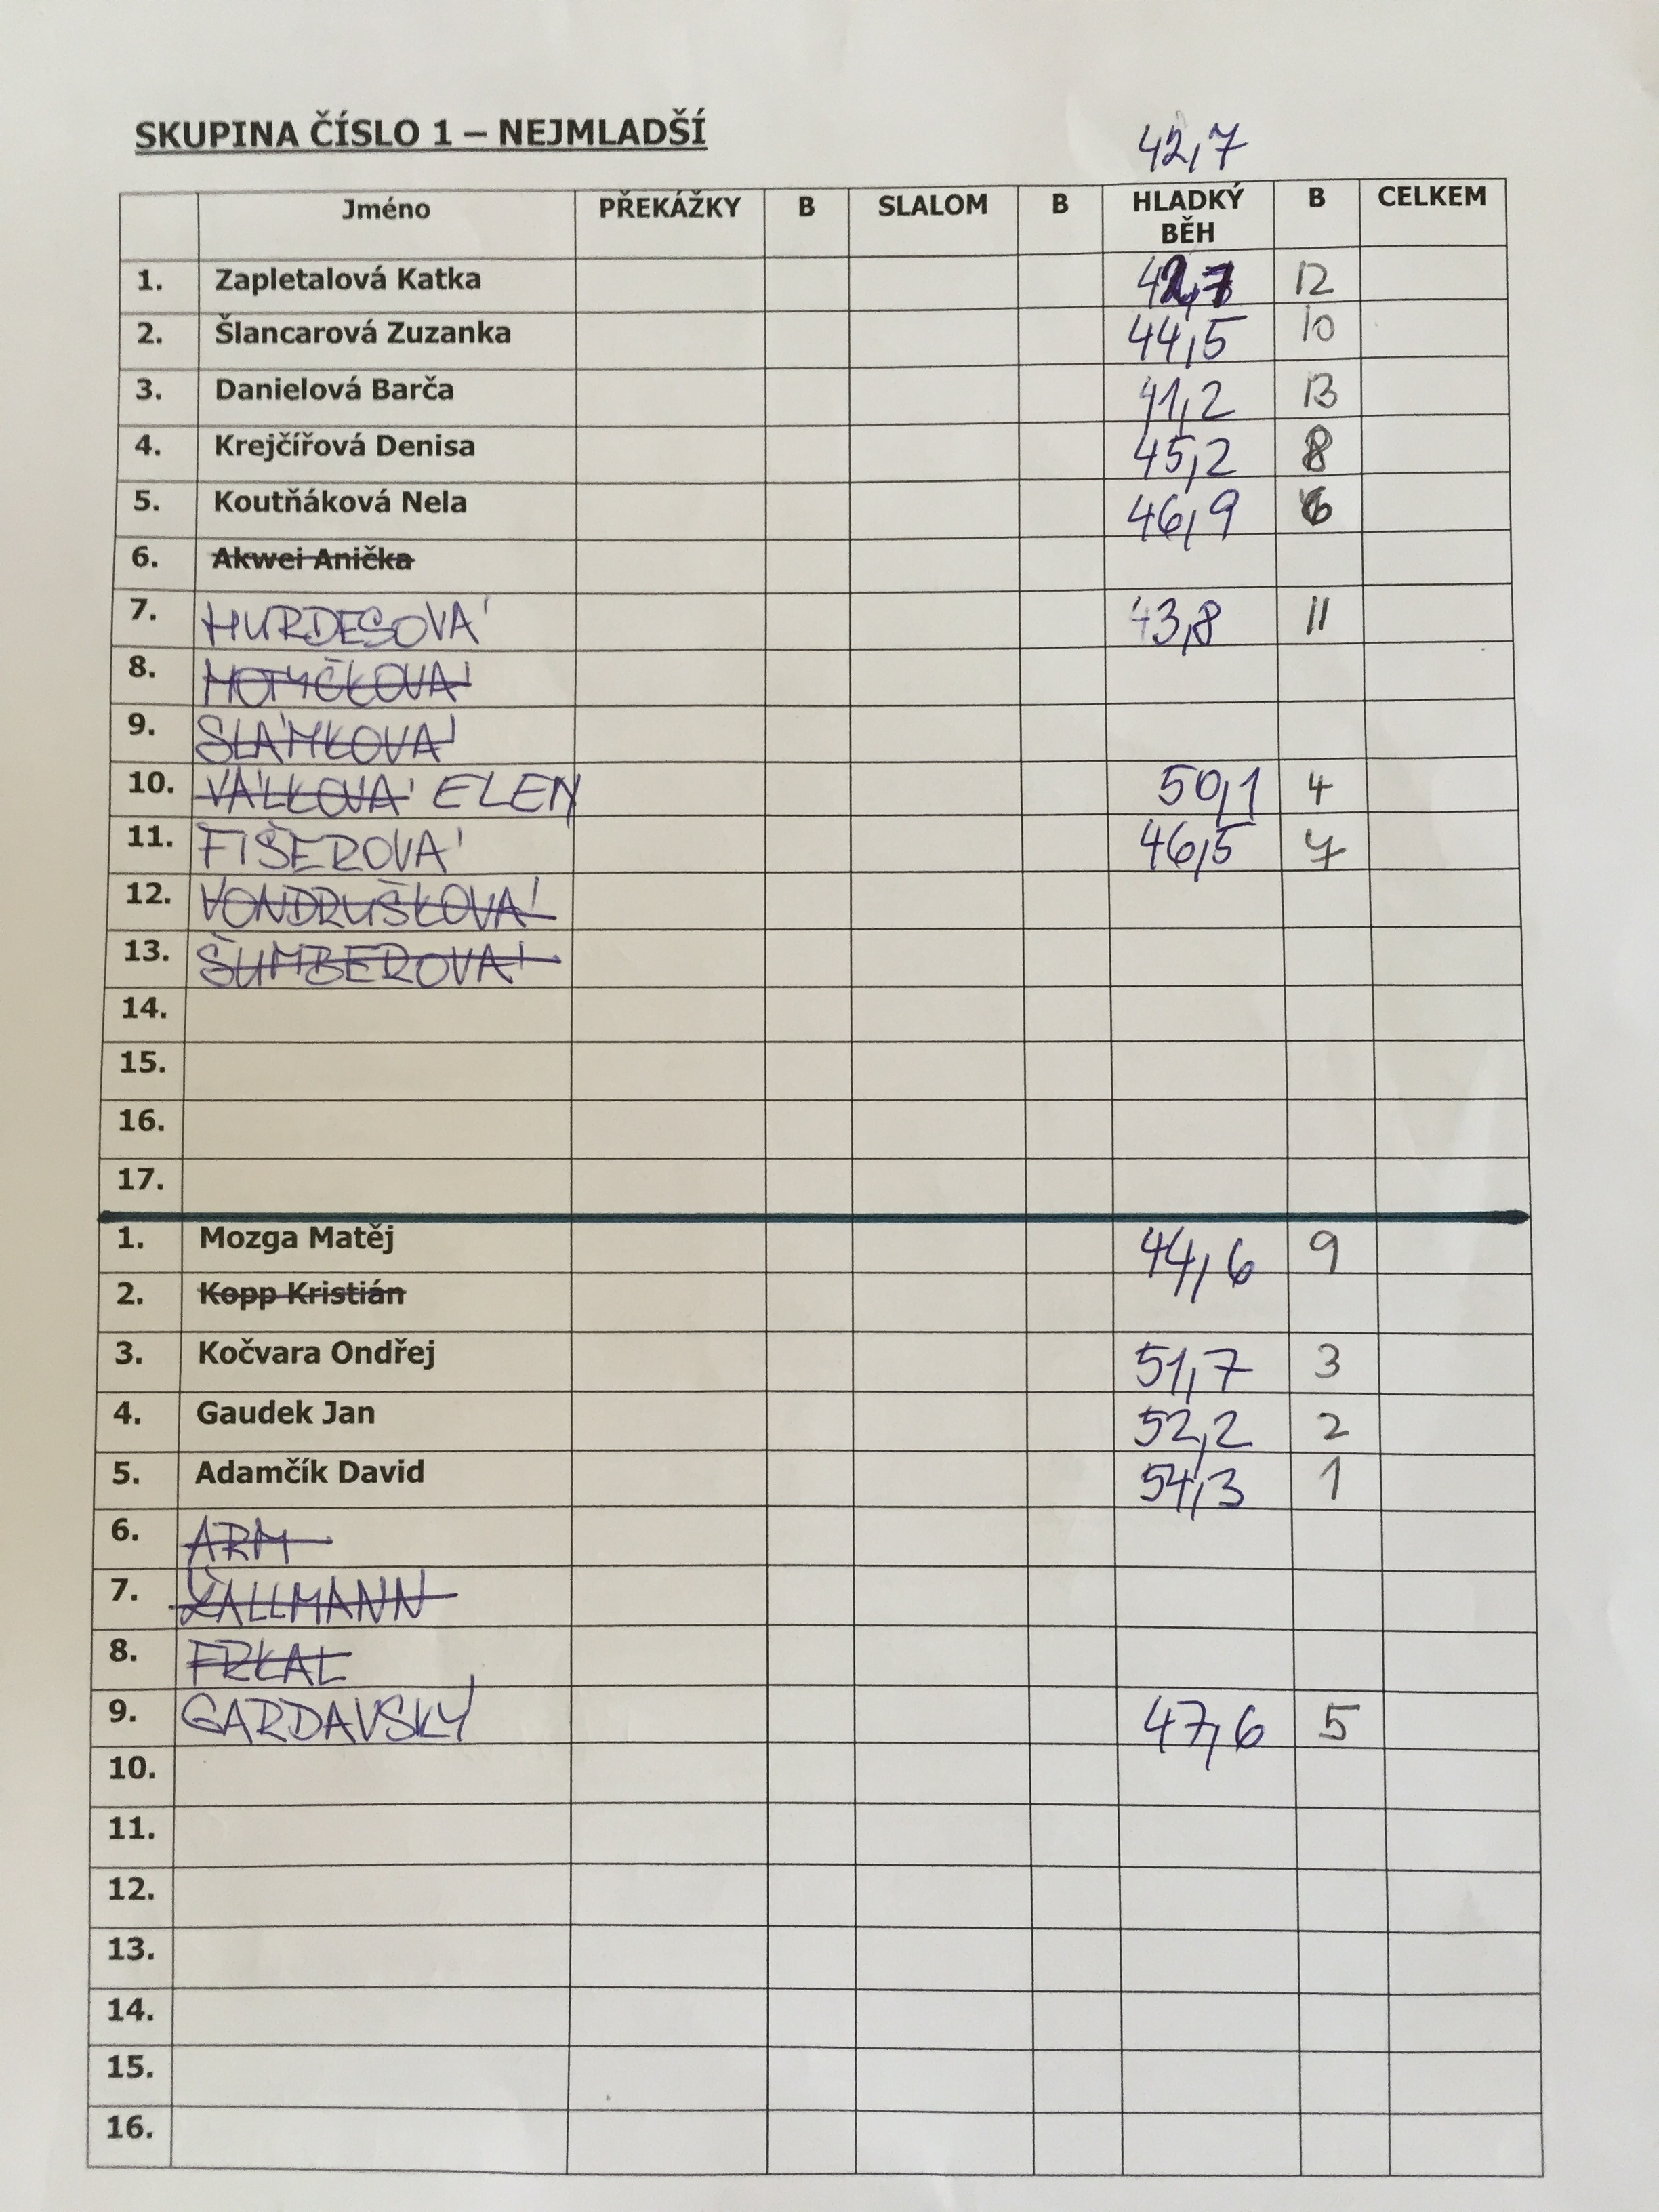 SKUPINA ČÍSLO 1 – NEJMLADŠÍ
42,7
Jméno PŘEKÁŽKY B SLALOM B HLADKÝ BĚH B CELKEM
1. Zapletalová Katka 42,7 12
2. Šlancarová Zuzanka 44,5 10
3. Danielová Barča 41,2 13
4. Krejčířová Denisa 45,2 8
5. Koutňáková Nela 46,9 6
6. Akwei Anička
7. HURDESOVÁ 43,8 11
8. MOTYČKOVÁ
9. SLÁMKOVÁ
10. VÁLKOVÁ ELEN 50,1 4
11. FIŠEROVÁ 46,5 7
12. VONDRUŠKOVÁ
13. ŠUMBEROVÁ
14.
15.
16.
17.
1. Mozga Matěj 44,6 9
2. Kopp Kristián
3. Kočvara Ondřej 51,7 3
4. Gaudek Jan 52,2 2
5. Adamčík David 54,3 1
6. ARM
7. KALLMANN
8. FRKAL
9. GARDAVSKÝ 47,6 5
10.
11.
12.
13.
14.
15.
16.